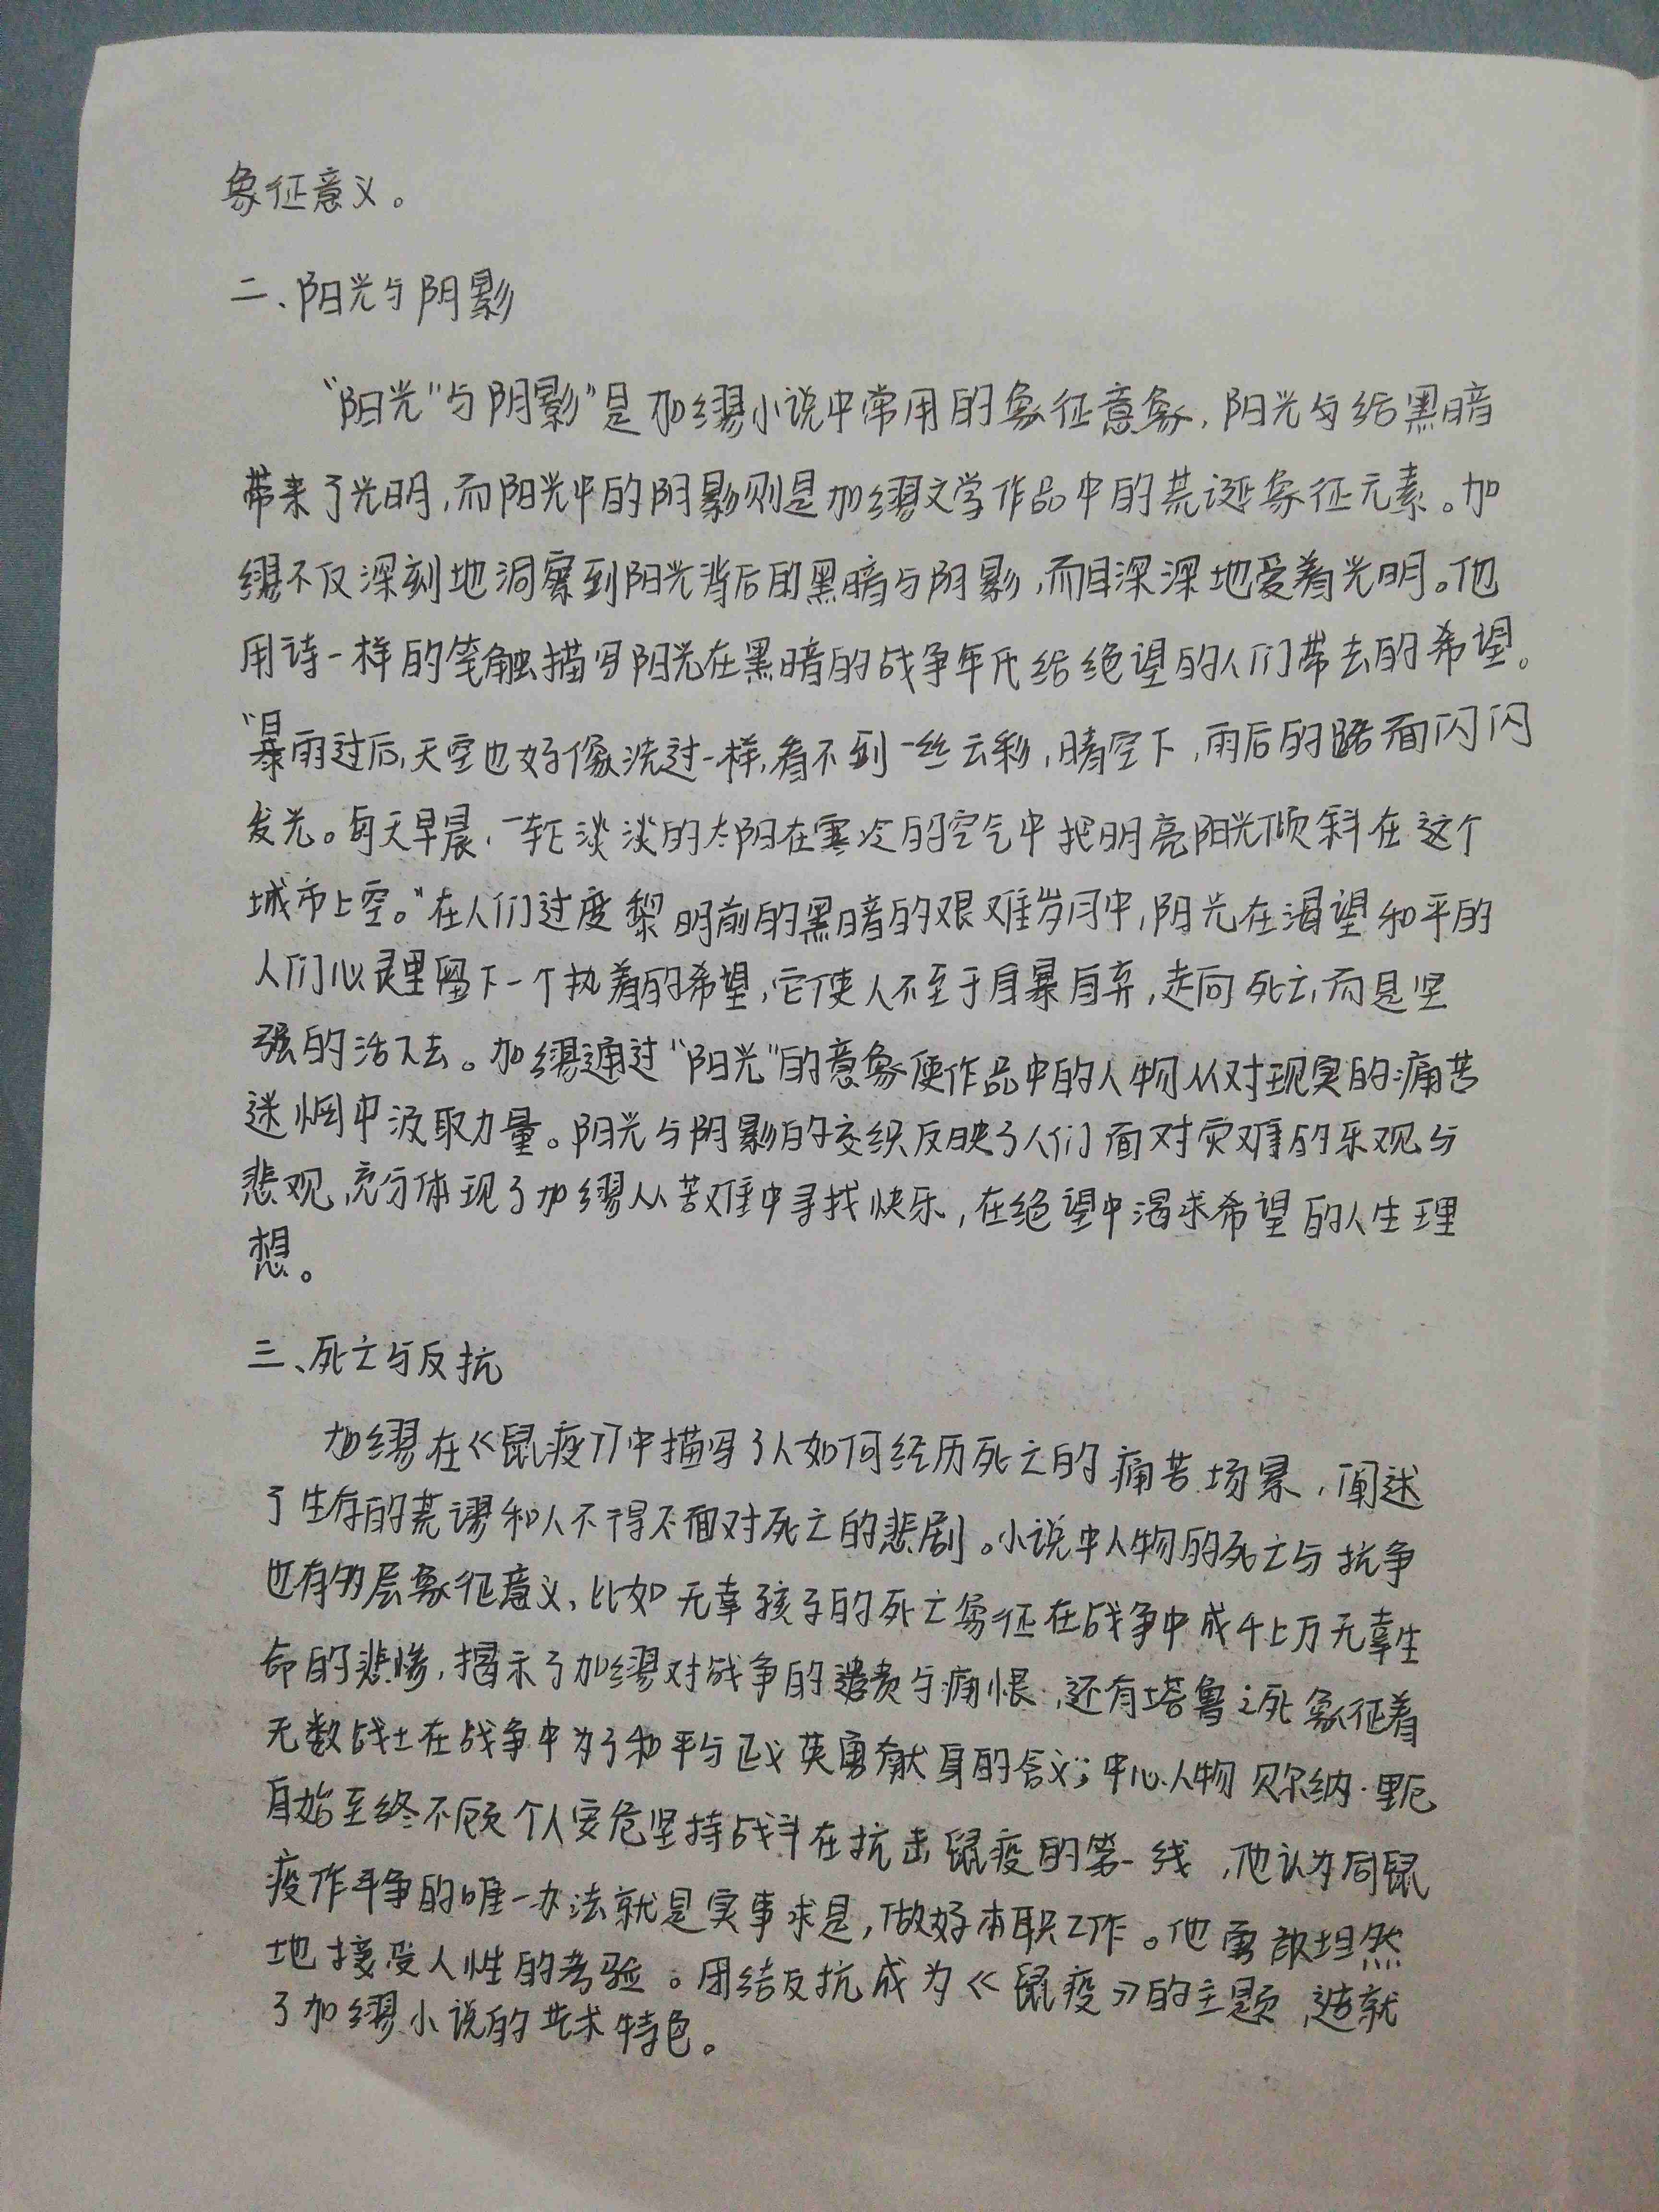 象征意义。
二、阳光与阴影
“阳光”与阴影”是加缪小说中常用的象征意象，阳光与给黑暗
带来了光明，而阳光中的阴影则是加缪文学作品中的荒诞象征元素。加
缪不仅深刻地洞察到阳光背后的黑暗与阴影，而且深深地爱着光明。他
用诗一样的笔触描写阳光在黑暗的战争年代给绝望的人们带去的希望。
“暴雨过后，天空也好像洗过一样，看不到一丝云彩，晴空下，雨后的路面闪闪
发光。每天早晨，一轮淡淡的太阳在寒冷的空气中把明亮阳光倾斜在这个
城市上空。”在人们过度黎明前的黑暗的艰难岁月中，阳光在渴望和平的
人们心灵里留下一个执着的希望，它使人不至于自暴自弃，走向死亡，而是坚
强的活下去。加缪通过“阳光”的意象使作品中的人物从对现实的痛苦
迷惘中汲取力量。阳光与阴影的交织反映了人们面对灾难的乐观与
悲观，充分体现了加缪从苦难中寻找快乐，在绝望中渴求希望的人生理
想。
三、死亡与反抗
加缪在《鼠疫》中描写了人如何经历死亡的痛苦场景，阐述
了生存的荒谬和人不得不面对死亡的悲剧。小说中人物的死亡与抗争
也有多层象征意义、比如无辜孩子的死亡象征在战争中成千上万无辜生
命的悲惨，揭示了加缪对战争的谴责与痛恨，还有塔鲁之死象征着
无数战士在战争中为了和平与正义英勇献身的含义；中心人物贝尔纳·里厄
自始至终不顾个人安危坚持战斗在抗击鼠疫的第一线，他认为同鼠
疫作斗争的唯一办法就是实事求是，做好本职工作。他勇敢坦然
地接受人性的考验。团结反抗成为《鼠疫》的主题，造就
了加缪小说的艺术特色。